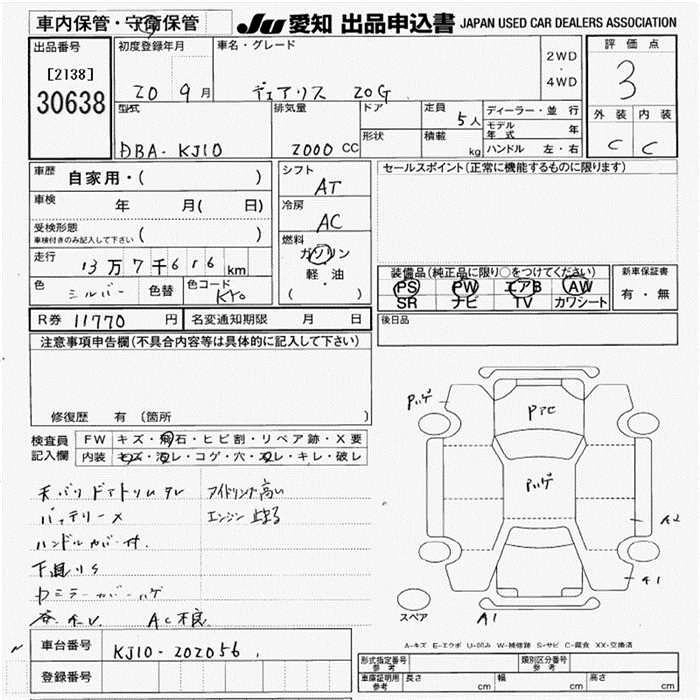 車内保管・守衛保管
JU 愛知 出品申込書 JAPAN USED CAR DEALERS ASSOCIATION
出品番号
[2138]
30638
初度登録年月
20 9月
車名・グレード
ディアリス 20G
2WD
・
4WD
評価点
3
外装 内装
C C
型式
DBA-KJ10
排気量
2000 CC
ドア
形状
定員 5人
積載 kg
ディーラー・並行
モデル年式 年
ハンドル 左・右
車歴 自家用・( )
車検 年 月( 日)
受検形態
車検付きのみ記入して下さい ( )
走行 13万7千616km
色 シルバー 色替 色コード KY0
シフト AT
冷房 AC
燃料
ガソリン
軽・油
( ・ )
セールスポイント(正常に機能するものに限ります)
装備品(純正品に限り○をつけてください)
PS PW エアB AW
SR ナビ TV カワシート
新車保証書
有・無
R券 11770円 名変通知期限 月 日
後日品
注意事項申告欄(不具合内容等は具体的に記入して下さい)
修復歴 有(箇所 )
検査員記入欄
FW キズ・飛石・ヒビ割・リペア跡・X要
内装 キズ・汚レ・コゲ・穴・スレ・キレ・破レ
天バリ ドアトリムタレ アイドリング高い
バッテリーX エンジン止る
ハンドルカバー付.
下廻りS
AC不良
Pハゲ
PAC
Pハゲ
A2
A1
A1
スペア
A-キズ E-エクボ U-凹み W-補修跡 S-サビ C-腐食 XX-交換済
車台番号 KJ10-202056
登録番号
形式指定番号 参考
類別区分番号 参考
車庫証明用 参考 長さ cm 幅 cm 高さ cm